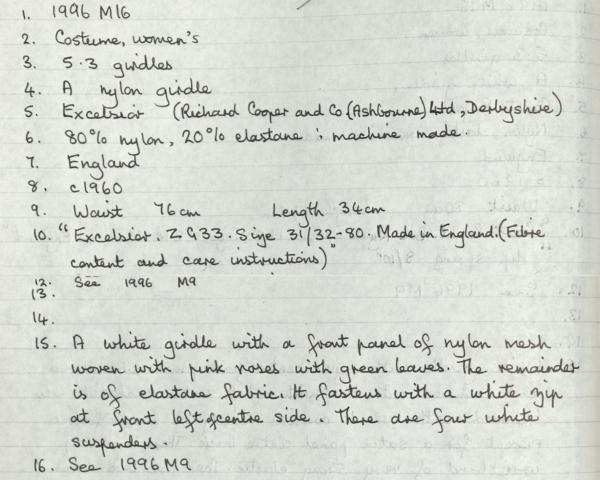 1. 1996 M16
2. Costume, women's
3. 5.3 girdles
4. A nylon girdle
5. Excelsior (Richard Cooper and Co (Ashbourne) Ltd, Derbyshire)
6. 80% nylon, 20% elastane; machine made.
7. England
8. c1960
9. Waist 76cm Length 34cm
10. "Excelsior. ZG33. Size 31/32-80. Made in England. (Fibre
content and care instructions)"
12. See 1996 M9
13.
14.
15. A white girdle with a front panel of nylon mesh
woven with pink roses with green leaves. The remainder
is of elastane fabric. It fastens with a white zip
at front left of centre side. There are four white
suspenders.
16. See 1996 M9